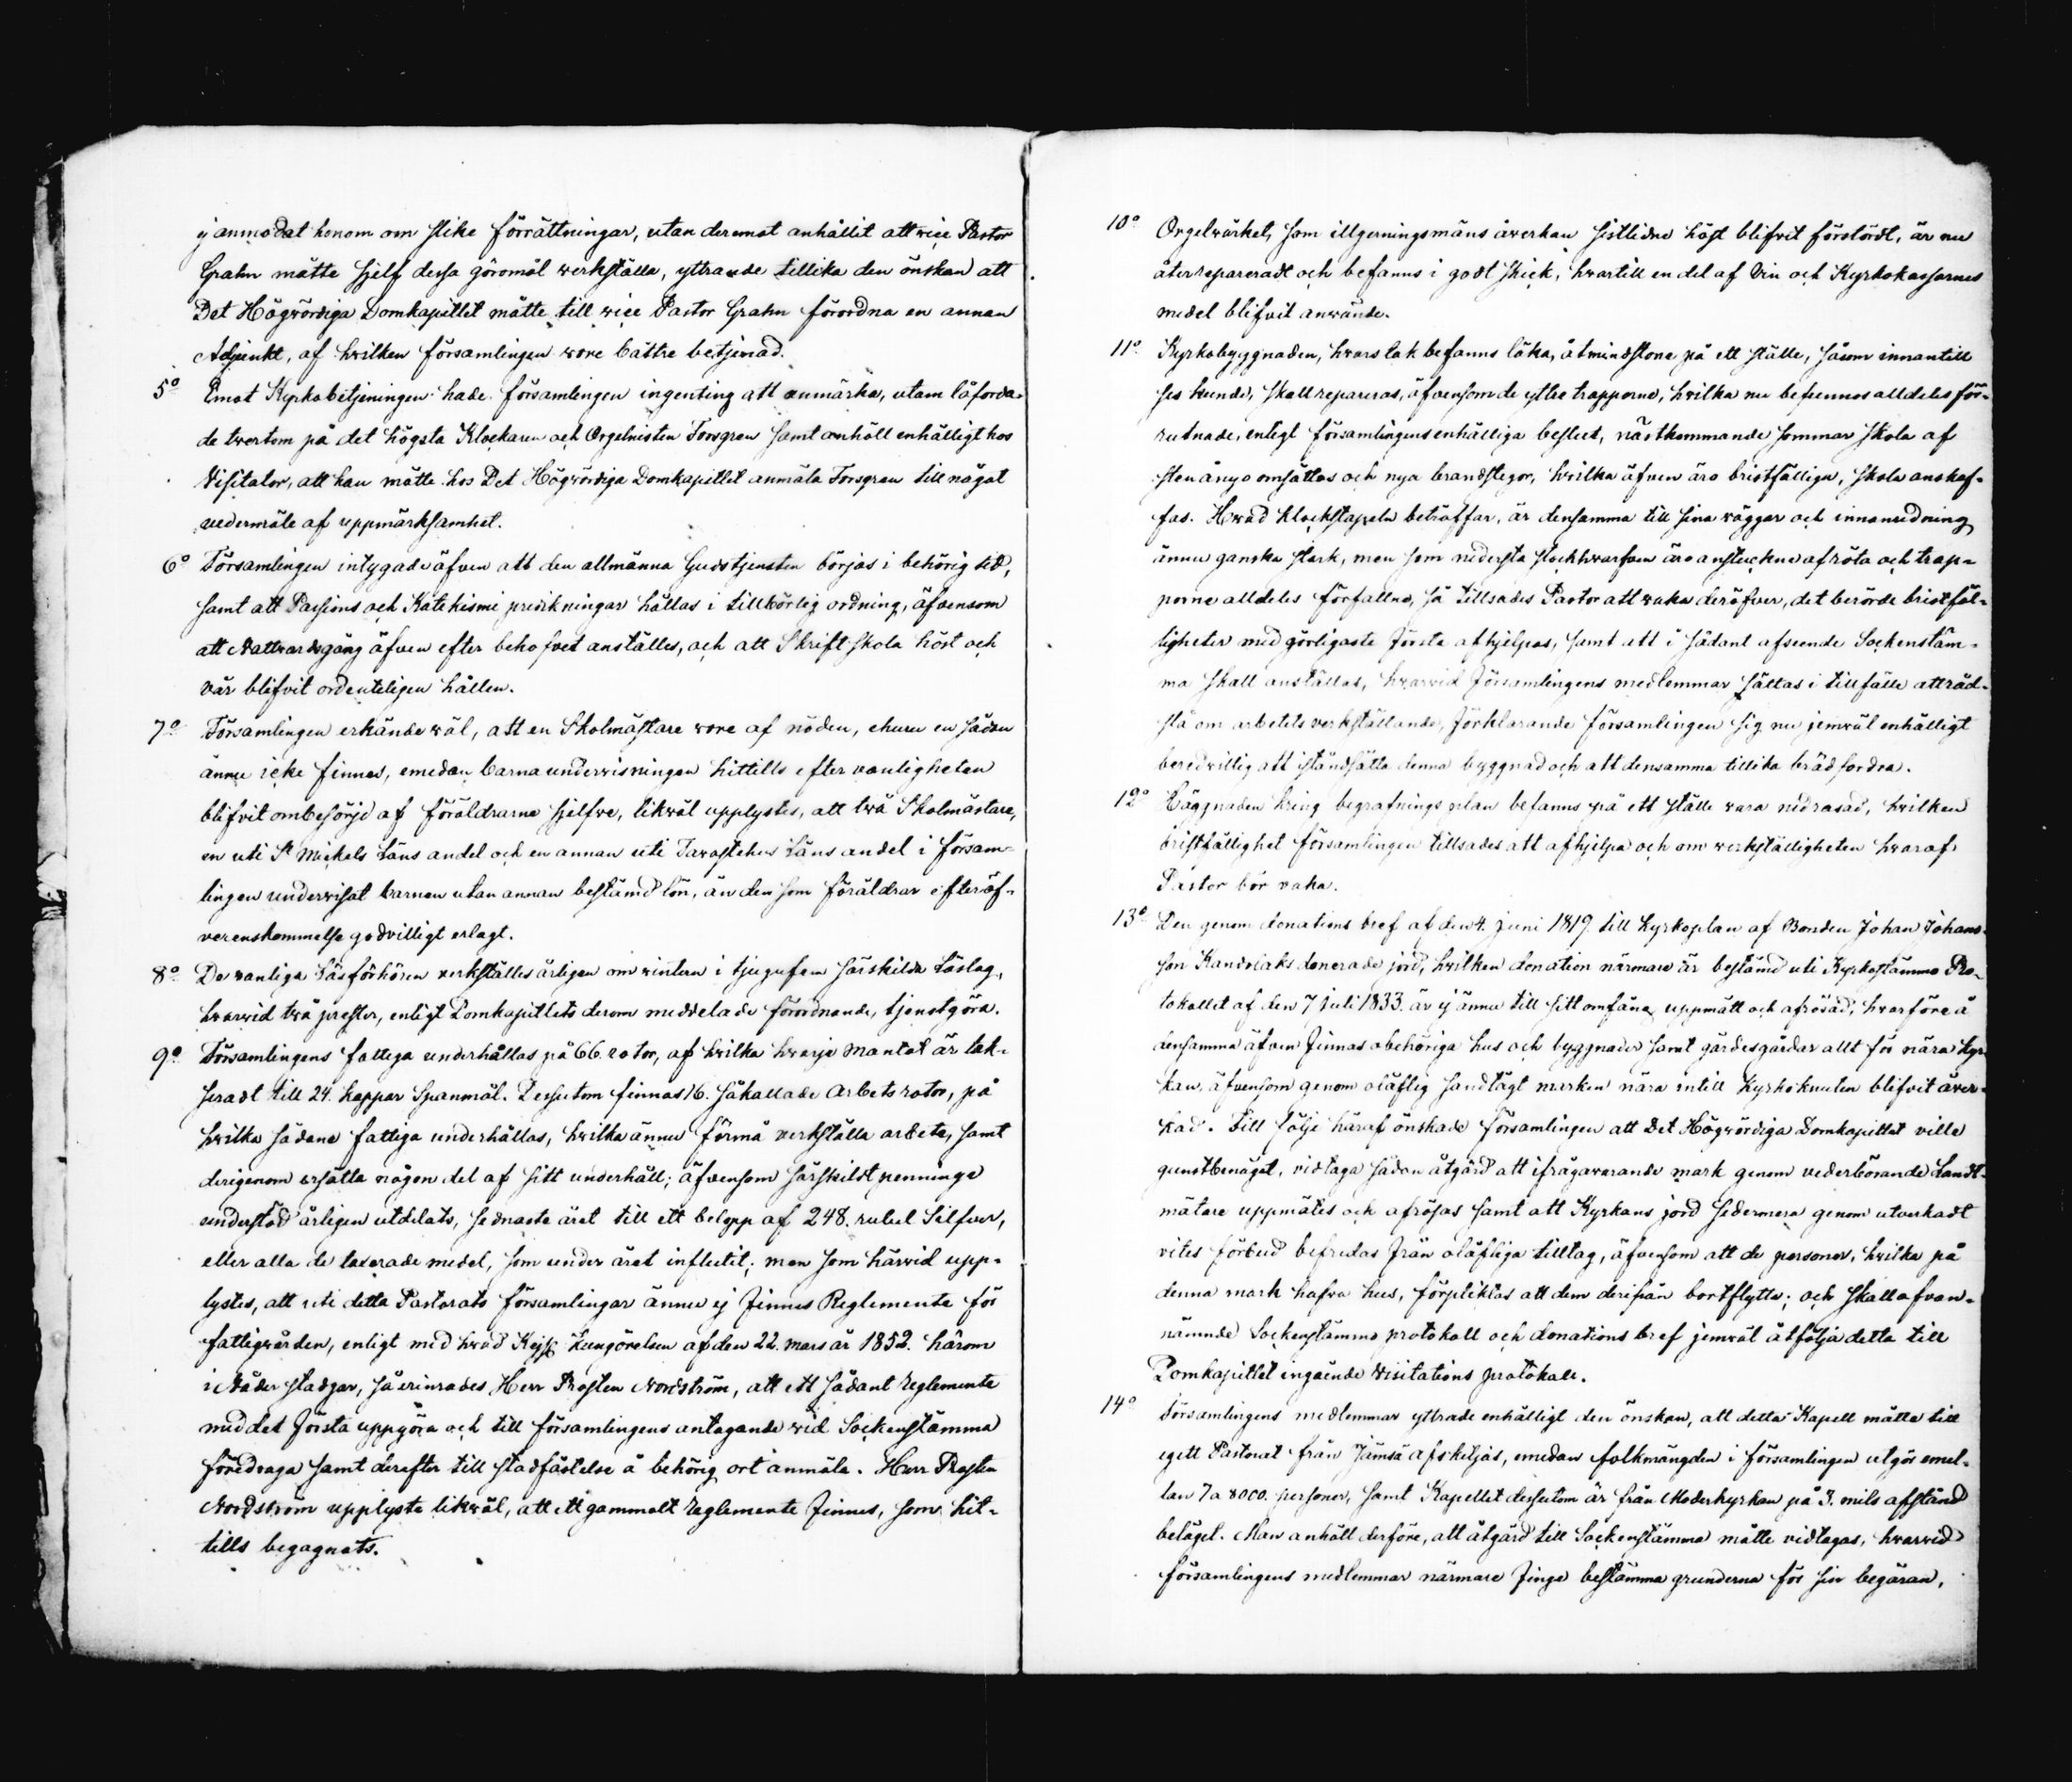 ej anmodat honom om slike förrättningar, utan deremot anhållit att vice Pastor
Grahn måtte sjelf dessa göromål werkställa, yttrande tillika den önskan att
Det Högwördiga Domkapitlet måtte till vice Pastor Grahn förordna en annan
Adjunkt, af hwilken församlingen wore bättre betjenad.
5o Emot Kyrkobetjeningen hade församlingen ingenting att anmärka, utan låforda-
de twertom på det högsta Klockaren och Orgelnisten Forsgren samt anhöll enhälligt hos
Visitator, att han måtte hos Det Högwördiga Domkapitlet anmäla Forsgren till något
vedermäle af uppmärksamhet.
6o Församlingen intygade äfven att den allmänna Gudstjensten börjas i behörig tid,
samt att Passions och Katekismi predikningar hållas i tillbörlig ordning, äfvensom
att Nattvardsgång äfven efter behofvet anställes, och att Skriftskola höst och
vår blifvit ordenteligen hållen.
7o Församlingen erkände wäl, att en Skolmästare wore af nöden, ehuru en sådan
ännu icke finnes, emedan barnaunderwisningen hittills efter vanligheten
blifvit ombesörjd af föräldrarne sjelfve, likwäl upplystes, att twå Skolmästare,
en uti St Michels Läns andel och en annan uti Tavastehus Läns andel i försam-
lingen underwisat barnen utan annan bestämd lön, än den som föräldrar efter öf-
verenskommelse godvilligt erlagt.
8o De vanliga Läsförhören verkställes årligen om vintern i tjugufem särskilda Läslag,
hvarvid två prester, enligt Domkapitlets derom meddelade förordnande, tjenstgöra.
9o Församlingens fattiga underhållas på 66 rotor, af hwilka hwarje Mantal är tak-
seradt till 24 kappar Spanmål. Dessutom finnas 16. såkallade arbetsrotor, på
hwilka sådane fattiga underhållas, hwilka ännu förmå verkställa arbete, samt
derigenom ersätta någon del af sitt underhåll; äfvensom särskildt penninge
understöd årligen utdelats, sednaste året till ett belopp af 248. rubel Silfver,
eller alla de taxerade medel, som under året influtit; men som härvid upp-
lystes, att uti detta Pastorats församlingar ännu ej finnes Reglemente för
fattigvården, enligt med hwad Kejs. Kungörelsen af den 22. mars år 1852. härom
i Nåder stadgar, så erinrades Herr Prosten Nordström, att ett sådant reglemente
med det första uppgöra och till församlingens antagande vid Sockenstämma
föredraga samt derefter till stadfästelse å behörig ort anmäla. Herr Prosten
Nordström upplyste likwäl, att ett gammalt reglemente finnes, som hit-
tills begagnats.
10o Orgelvärket, som illgerningsmäns åverkan sistlidne höst blifvit förstördt, är nu
återrepareradt och befanns i godt skick, hvartill en del af Vin och Kyrkokassornes
medel blifvit använde.
11o Kyrkobyggnaden, hvars tak befanns läka, åtminstone på ett ställe, såsom innantill
ses kunde, skall repareras, äfvensom de yttre trapporne, hvilka nu befunnos alldeles för-
rutnade, enligt församlingens enhälliga beslut, nästkommande sommar skola af
sten å nyo omsättas och nya brandstegor, hvilka äfven äro bristfälliga, skola anskaf-
fas. Hwad Klockstapeln beträffar, är densamma till sina väggar och innanredning
ännu ganska stark, men som nedersta stockhwarfven äro anstuckne af röta och trap-
porne alldeles förfallne, så tillsades Pastor att waka deröfver, det berörde bristfäl-
ligheter med görligaste första afhjelpas, samt att i sådant afseende Sockenstäm-
ma skall anställas, hvarvid församlingens medlemmar sättas i tillfälle att råd-
slå om arbetets verkställande, förklarande församlingen sig nu jemväl enhälligt
beredvillig att iståndsätta denna byggnad och att densamma tillika brädfordra.
12o Häggnaden kring begrafningsplan befanns på ett ställe vara nedrasad, hvilken
bristfällighet församlingen tillsades att afhjelpa och om verkställigheten hvaraf
Pastor bör vaka.
13o Den genom donations bref af den 4. Juni 1819. till kyrkoplan af Bonden Johan Johans-
son Kandolaks donerade jord, hvilken donation närmare är bestämd uti Kyrkostämmo Pro-
tokollet af den 7 Juli 1833. är ej ännu till sitt omfång uppmätt och afrösad, hvarföre å
densamma äfven finnas obehöriga hus och byggnader samt gärdesgårdar allt för nära Kyr-
kan, äfvensom genom olåflig sandtägt marken nära intill Kyrkoknuten blifvit åver-
kad. Till följe häraf önskade församlingen att Det Högwördiga Domkapitlet ville
gunstbenäget, vidtaga sådan åtgärd att ifrågavarande mark genom vederbörande Landt-
mätare uppmätes och afrösas samt att Kyrkans jord sedermera genom utverkadt
vites förbud befredas från olåfliga tilltag, äfvensom att de personer, hvilka på
denna mark hafva hus, förpliktas att dem derifrån bortflytta; och skall ofvan-
nämnde Sockenstämmo protokoll och donations bref jemväl åtfölja detta till
Domkapitlet ingående Visitations protokoll.
14o Församlingens medlemmar yttrade enhälligt den önskan, att detta Kapell måtte till
eget Pastorat från Jämsä afskiljas, emedan folkmängden i församlingen utgör emel-
lan 7 a 8000. personer, samt Kapellet dessutom är från Moderkyrkan på 3. mils afstånd
beläget. Man anhöll derföre, att åtgärd till Sockenstämma måtte vidtagas, hvarvid
församlingens medlemmar närmare finge bestämma grunderna för sin begäran,